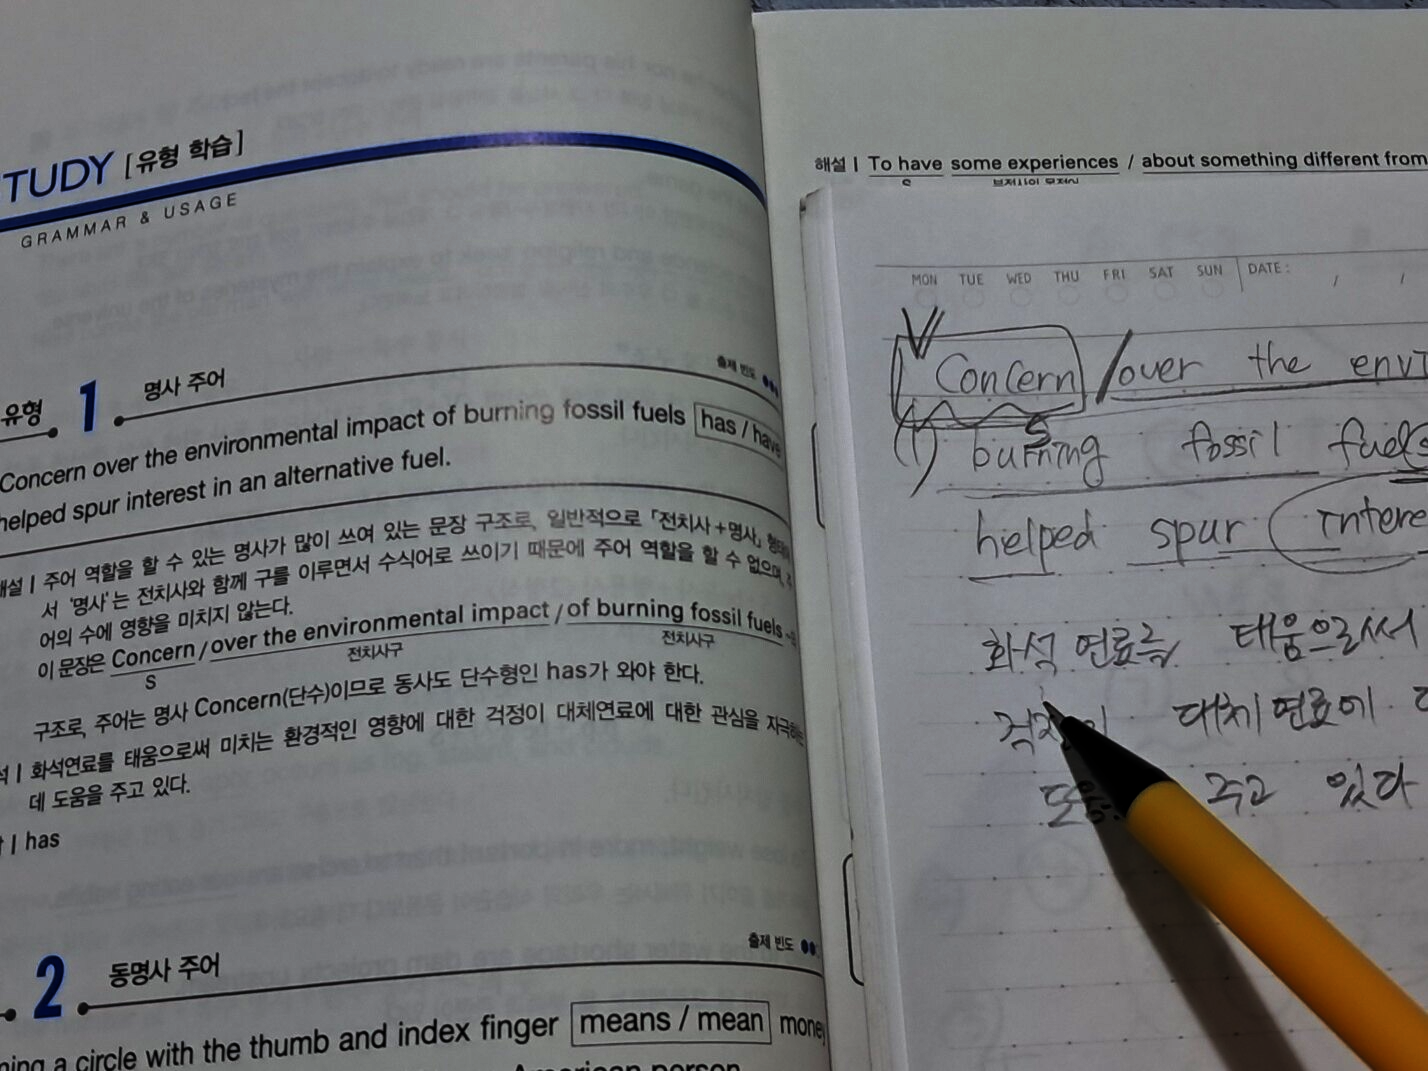 TUDY [유형 학습]
GRAMMAR & USAGE
유형 1 명사 주어
출제 빈도
Concern over the environmental impact of burning fossil fuels has / have
helped spur interest in an alternative fuel.
해설 | 주어 역할을 할 수 있는 명사가 많이 쓰여 있는 문장 구조로, 일반적으로 「전치사+명사」 형태에
서 '명사'는 전치사와 함께 구를 이루면서 수식어로 쓰이기 때문에 주어 역할을 할 수 없으며, 주
어의 수에 영향을 미치지 않는다.
이 문장은 Concern / over the environmental impact / of burning fossil fuels
S 전치사구 전치사구
구조로, 주어는 명사 Concern(단수)이므로 동사도 단수형인 has가 와야 한다.
석 | 화석연료를 태움으로써 미치는 환경적인 영향에 대한 걱정이 대체연료에 대한 관심을 자극하는
데 도움을 주고 있다.
| has
2 동명사 주어
출제 빈도
ning a circle with the thumb and index finger means / mean money
American person
해설 | To have some experiences / about something different from
S
MON TUE WED THU FRI SAT SUN DATE: / /
Concern / over the envi
burning fossil fuels
helped spur intere
화석 연료를 태움으로써
대체연료에
주고 있다